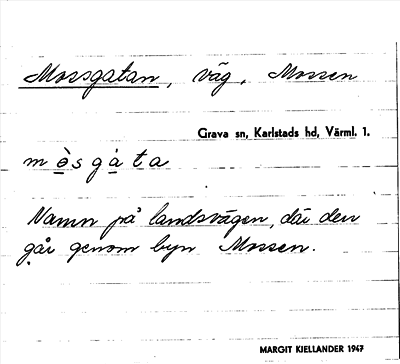 Mossgatan, väg, Mossen
Grava sn, Karlstads hd, Värml. 1.
mòsgàta
Namn på landsvägen, där den
går genom byn Mossen.
MARGIT KIELLANDER 1947